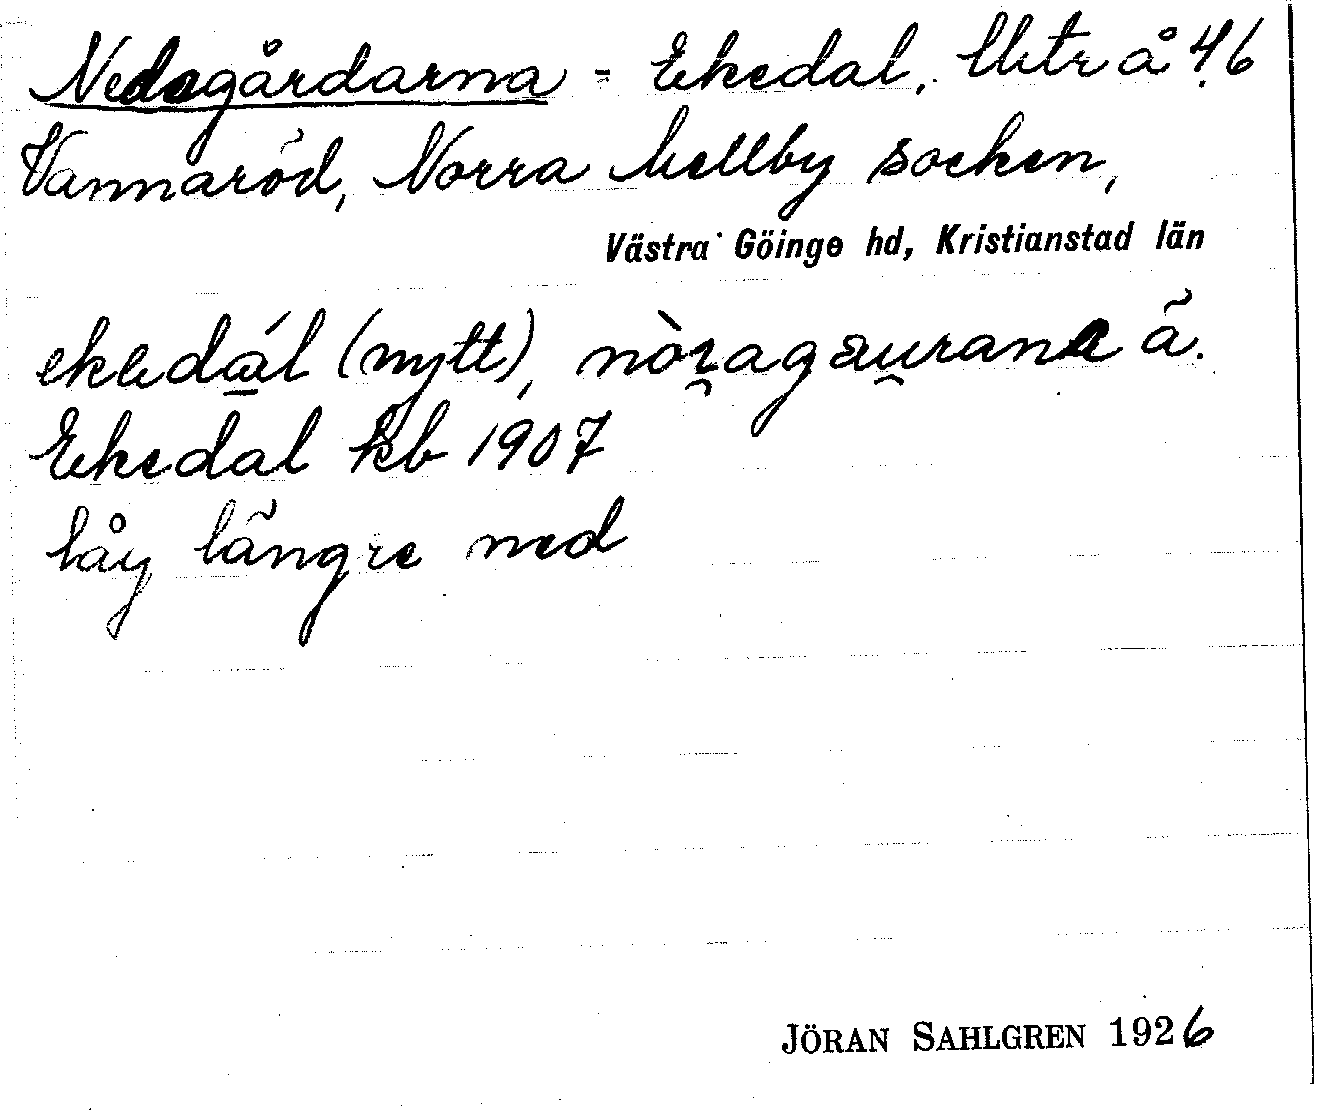 Nedagårdarna = Ekedal, Utr å 46
Vannaröd, Norra Mellby socken,
Västra Göinge hd, Kristianstad län
ekedál (nytt), nòragaurana ä.
Ekedal kb 1907
låg längre ned
JÖRAN SAHLGREN 1926